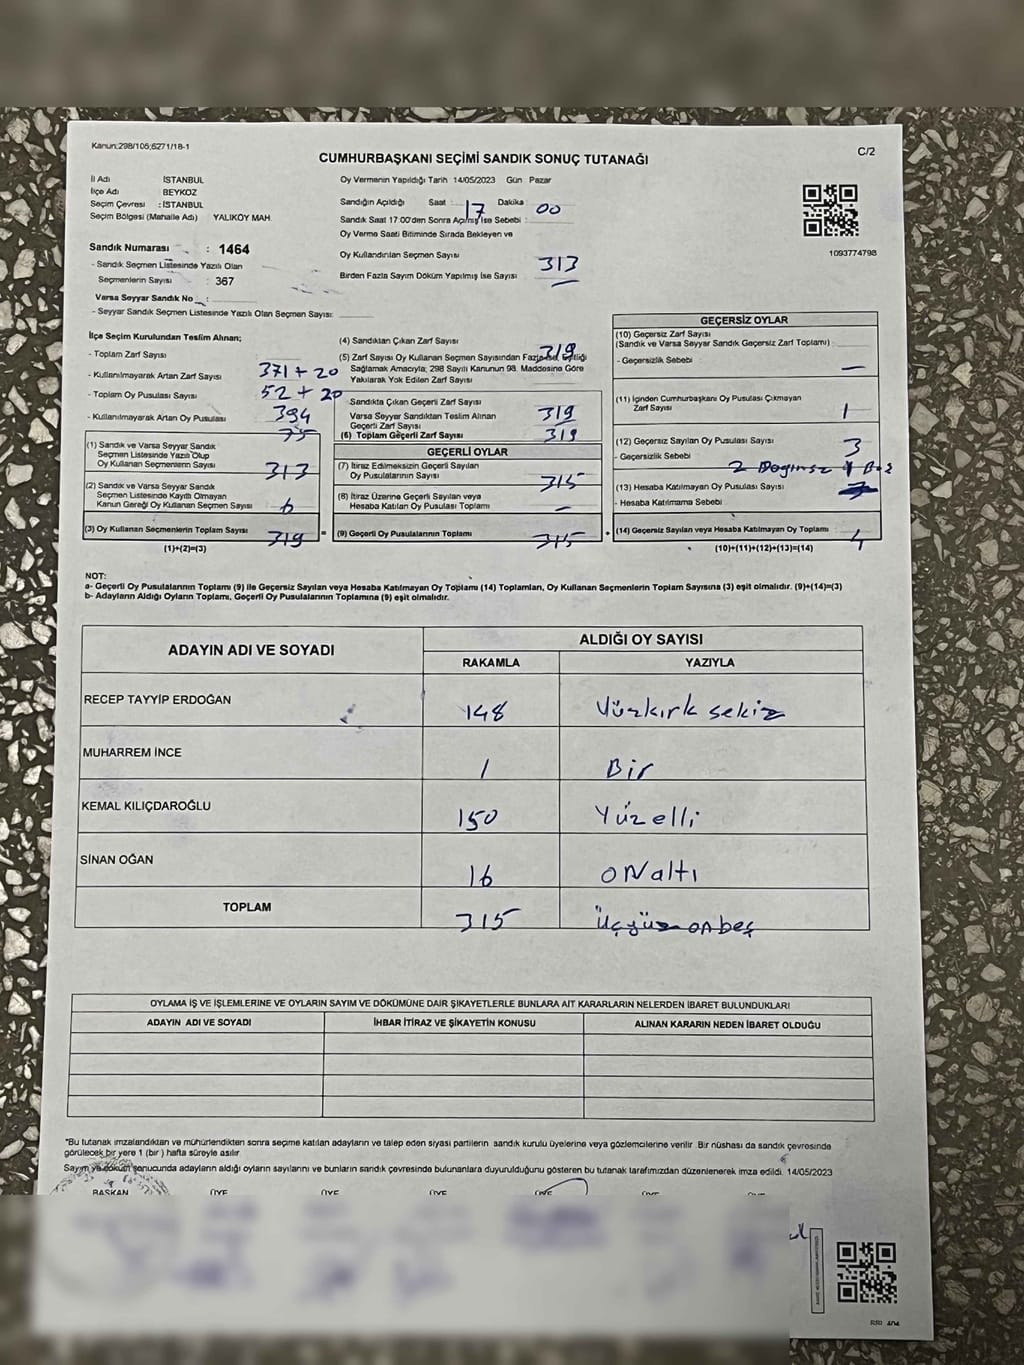 Kanun:298/105;6271/18-1
CUMHURBAŞKANI SEÇİMİ SANDIK SONUÇ TUTANAĞI
C/2
İl Adı : İSTANBUL
İlçe Adı : BEYKOZ
Seçim Çevresi : İSTANBUL
Seçim Bölgesi (Mahalle Adı) YALIKÖY MAH.
Sandık Numarası : 1464
- Sandık Seçmen Listesinde Yazılı Olan
Seçmenlerin Sayısı : 367
Varsa Seyyar Sandık No :
- Seyyar Sandık Seçmen Listesinde Yazılı Olan Seçmen Sayısı:
Oy Vermenin Yapıldığı Tarih 14/05/2023 Gün Pazar
Sandığın Açıldığı Saat 17 Dakika 00
Sandık Saat 17:00'den Sonra Açılmış İse Sebebi :
Oy Verme Saati Bitiminde Sırada Bekleyen ve
Oy Kullandırılan Seçmen Sayısı 313
Birden Fazla Sayım Döküm Yapılmış İse Sayısı
1093774798
İlçe Seçim Kurulundan Teslim Alınan;
- Toplam Zarf Sayısı 371 + 20
- Kullanılmayarak Artan Zarf Sayısı 52 + 20
- Toplam Oy Pusulası Sayısı 394
- Kullanılmayarak Artan Oy Pusulası 75
(1) Sandık ve Varsa Seyyar Sandık
Seçmen Listesinde Yazılı Olup
Oy Kullanan Seçmenlerin Sayısı 313
(2) Sandık ve Varsa Seyyar Sandık
Seçmen Listesinde Kayıtlı Olmayan
Kanun Gereği Oy Kullanan Seçmen Sayısı 6
(3) Oy Kullanan Seçmenlerin Toplam Sayısı 319
(1)+(2)=(3)
(4) Sandıktan Çıkan Zarf Sayısı 319
(5) Zarf Sayısı Oy Kullanan Seçmen Sayısından Fazla ise, Eşitliği
Sağlamak Amacıyla; 298 Sayılı Kanunun 98. Maddesine Göre
Yakılarak Yok Edilen Zarf Sayısı
Sandıkta Çıkan Geçerli Zarf Sayısı 319
Varsa Seyyar Sandıktan Teslim Alınan
Geçerli Zarf Sayısı
(6) Toplam Geçerli Zarf Sayısı 319
GEÇERLİ OYLAR
(7) İtiraz Edilmeksizin Geçerli Sayılan
Oy Pusulalarının Sayısı 315
(8) İtiraz Üzerine Geçerli Sayılan veya
Hesaba Katılan Oy Pusulası Toplamı -
= (9) Geçerli Oy Pusulalarının Toplamı 315 +
GEÇERSİZ OYLAR
(10) Geçersiz Zarf Sayısı
(Sandık ve Varsa Seyyar Sandık Geçersiz Zarf Toplamı) :
- Geçersizlik Sebebi : —
(11) İçinden Cumhurbaşkanı Oy Pusulası Çıkmayan
Zarf Sayısı 1
(12) Geçersiz Sayılan Oy Pusulası Sayısı 3
- Geçersizlik Sebebi
(13) Hesaba Katılmayan Oy Pusulası Sayısı
- Hesaba Katılmama Sebebi :
(14) Geçersiz Sayılan veya Hesaba Katılmayan Oy Toplamı 4
(10)+(11)+(12)+(13)=(14)
NOT:
a- Geçerli Oy Pusulalarının Toplamı (9) ile Geçersiz Sayılan veya Hesaba Katılmayan Oy Toplamı (14) Toplamları, Oy Kullanan Seçmenlerin Toplam Sayısına (3) eşit olmalıdır. (9)+(14)=(3)
b- Adayların Aldığı Oyların Toplamı, Geçerli Oy Pusulalarının Toplamına (9) eşit olmalıdır.
ADAYIN ADI VE SOYADI
ALDIĞI OY SAYISI
RAKAMLA YAZIYLA
RECEP TAYYİP ERDOĞAN 148 Yüzkırk sekiz
MUHARREM İNCE 1 Bir
KEMAL KILIÇDAROĞLU 150 Yüz elli
SİNAN OĞAN 16 ON altı
TOPLAM 315 üçyüz on beş
OYLAMA İŞ VE İŞLEMLERİNE VE OYLARIN SAYIM VE DÖKÜMÜNE DAİR ŞİKAYETLERLE BUNLARA AİT KARARLARIN NELERDEN İBARET BULUNDUKLARI
ADAYIN ADI VE SOYADI İHBAR İTİRAZ VE ŞİKAYETİN KONUSU ALINAN KARARIN NEDEN İBARET OLDUĞU
"Bu tutanak imzalandıktan ve mühürlendikten sonra seçime katılan adayların ve talep eden siyasi partilerin sandık kurulu üyelerine veya gözlemcilerine verilir. Bir nüshası da sandık çevresinde
görülecek bir yere 1 (bir ) hafta süreyle asılır.
Sayım ve döküm sonucunda adayların aldığı oyların sayılarını ve bunların sandık çevresinde bulunanlara duyurulduğunu gösteren bu tutanak tarafımızdan düzenlenerek imza edildi. 14/05/2023
BAŞKAN ÜYE ÜYE ÜYE ÜYE ÜYE ÜYE